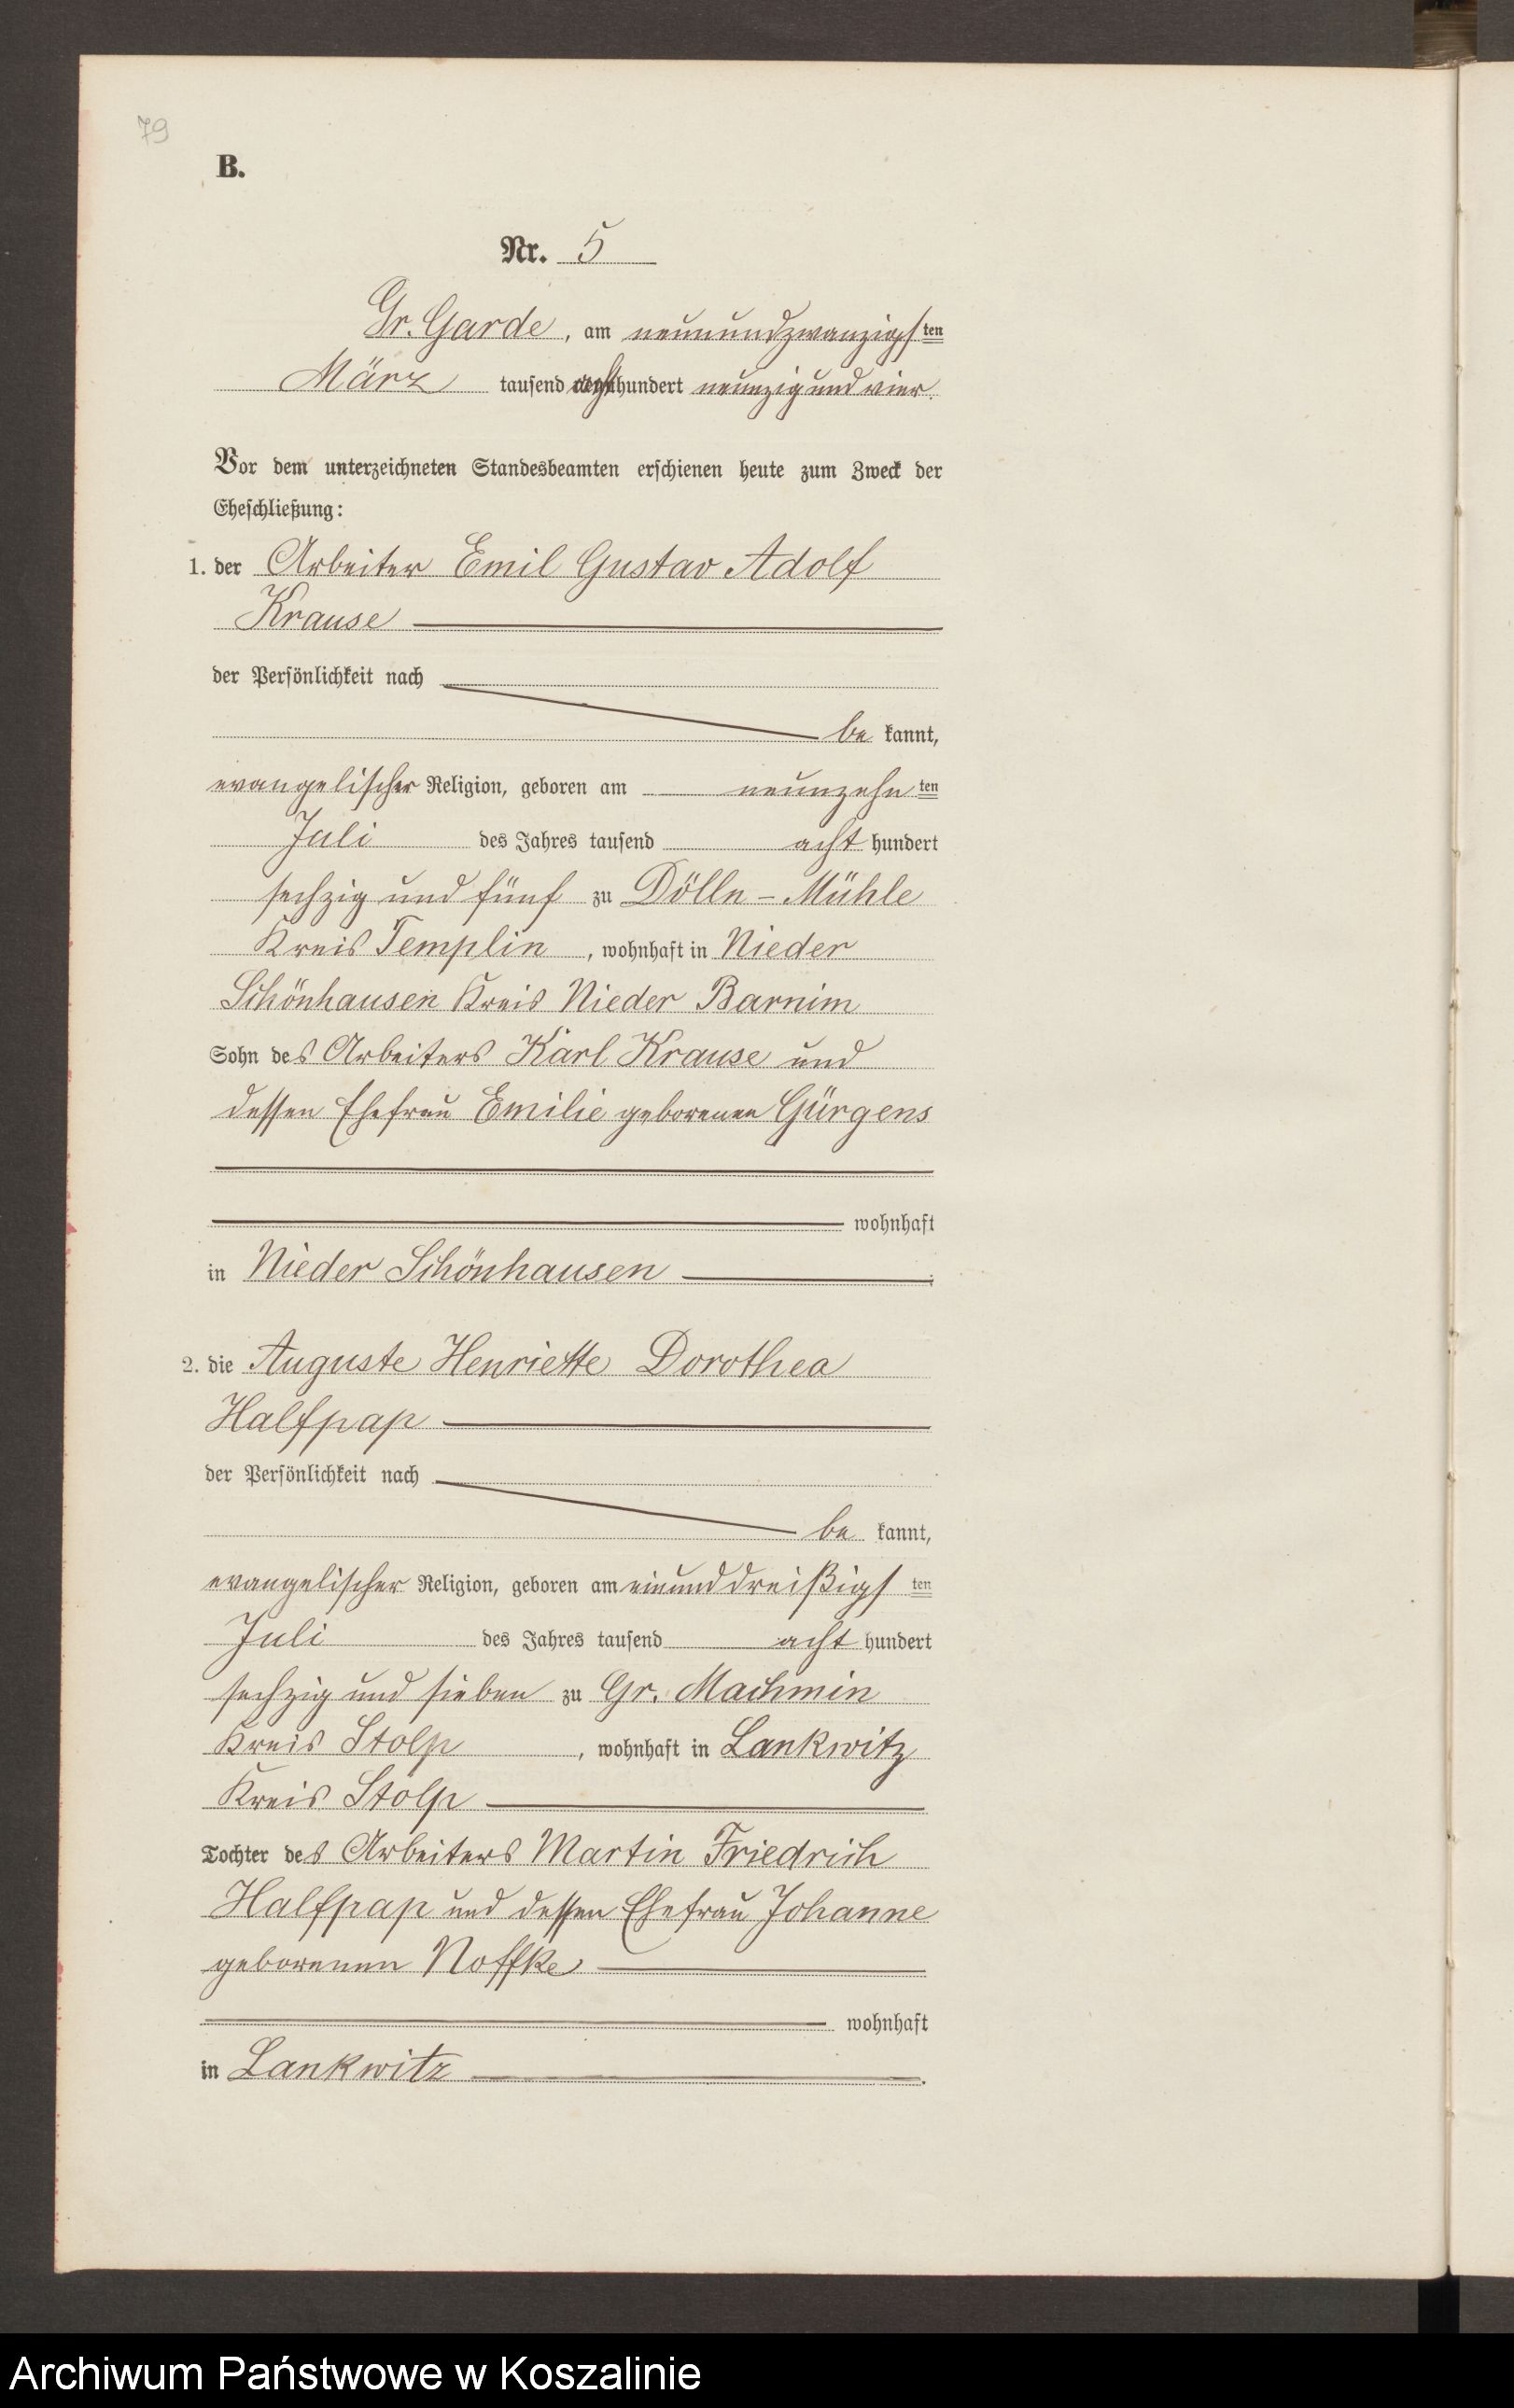 79
B.
Nr. 5
Gr. Garde, am neunundzwanzigsten
März tausend achthundert neunzig und vier.
Vor dem unterzeichneten Standesbeamten erschienen heute zum Zweck der
Eheschließung:
1. der Arbeiter Emil Gustav Adolf
Krause
der Persönlichkeit nach
be kannt,
evangelischer Religion, geboren am neunzehn ten
Juli des Jahres tausend acht hundert
sechzig und fünf zu Dölln-Mühle
Kreis Templin, wohnhaft in Nieder
Schönhausen Kreis Nieder Barnim
Sohn des Arbeiters Karl Krause und
dessen Ehefrau Emilie geborenen Gürgens
wohnhaft
in Nieder Schönhausen;
2. die Auguste Henriette Dorothea
Halfpap
der Persönlichkeit nach
be kannt,
evangelischer Religion, geboren am einunddreißigs ten
Juli des Jahres tausend acht hundert
sechzig und sieben zu Gr. Machmin
Kreis Stolp, wohnhaft in Lankwitz
Kreis Stolp
Tochter des Arbeiters Martin Friedrich
Halfpap und dessen Ehefrau Johanne
geborenen Noffke
wohnhaft
in Lankwitz.
Archiwum Państwowe w Koszalinie